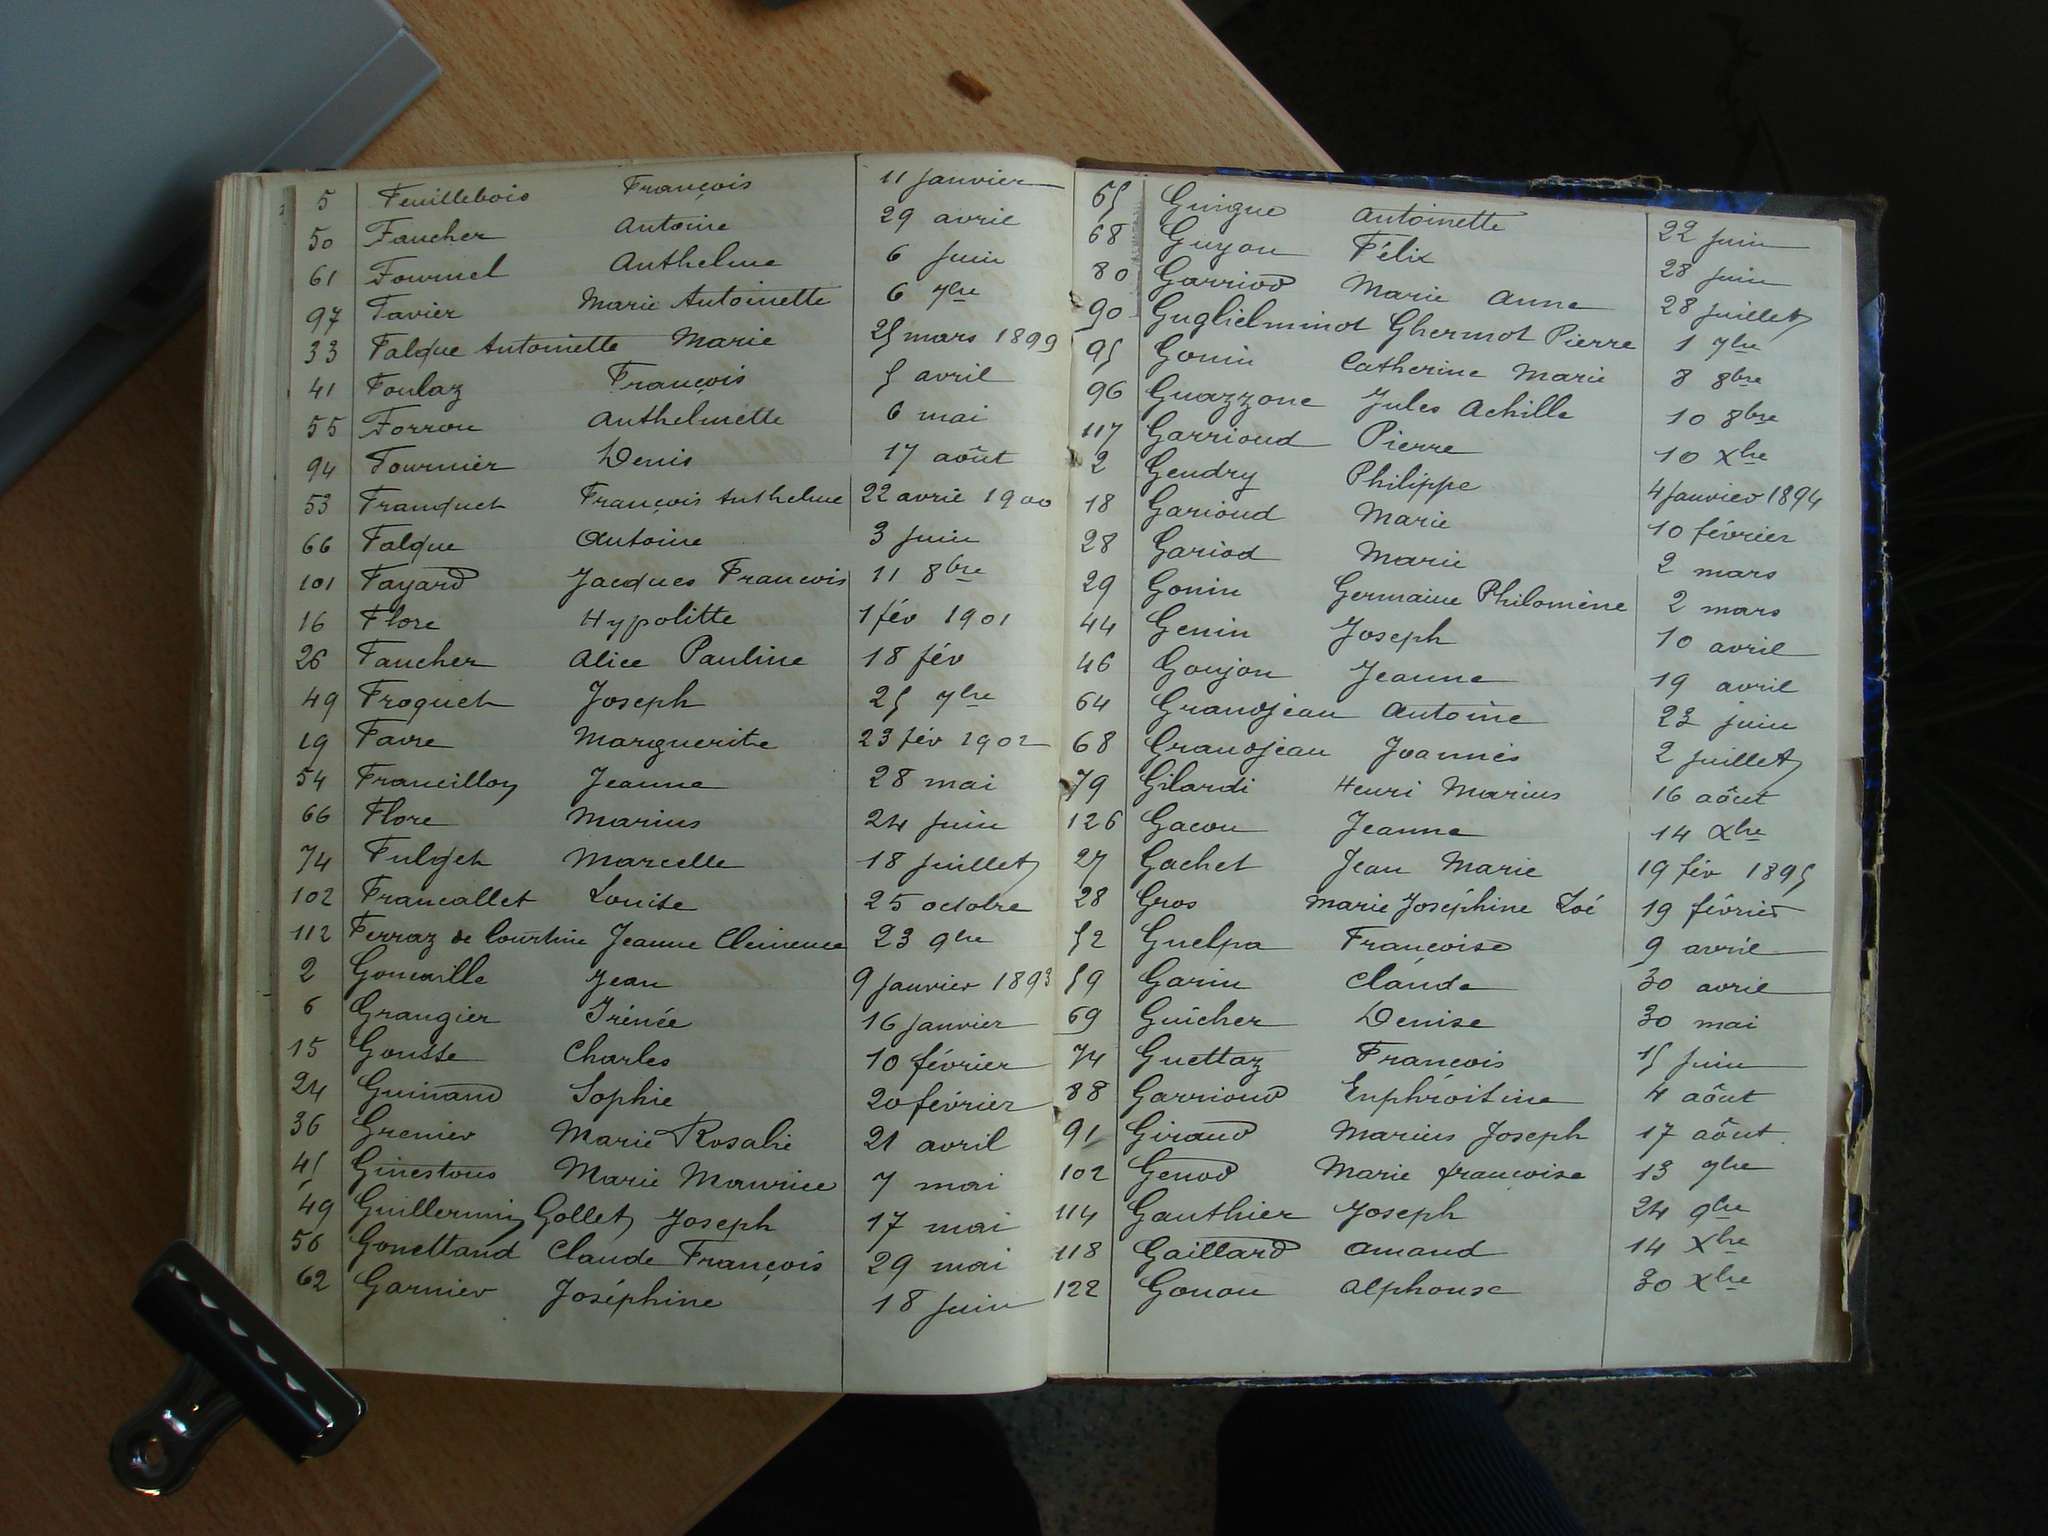 5 Feuillebois François 11 Janvier
50 Faucher Antoine 29 avril
61 Fournel Anthelme 6 Juin
97 Favier Marie Antoinette 6 7bre
33 Falque Antoinette Marie 25 mars 1899
41 Foulaz François 5 avril
55 Forron Anthelmette 6 mai
94 Fournier Denis 17 août
53 Franquet François Anthelme 22 avril 1900
66 Falque Antoine 3 Juin
101 Fayard Jacques François 11 8bre
16 Flore Hypolitte 1 fév 1901
26 Faucher Alice Pauline 18 fév
49 Froquet Joseph 25 7bre
19 Favre Marguerite 23 fév 1902
54 Francillon Jeanne 28 mai
66 Flore Marius 24 Juin
74 Marcelle 18 Juillet
102 Francallet Louise 25 octobre
112 Ferraz de Courtine Jeanne Clémence 23 9bre
2 Jean 9 Janvier 1893
6 Grangier Irénée 16 Janvier
15 Gousse Charles 10 février
24 Guinand Sophie 20 février
36 Grenier Marie Rosalie 21 avril
45 Ginestous Marie Maurice 7 mai
49 Guillermin Gollet Joseph 17 mai
56 Gonettand Claude François 29 mai
62 Garnier Joséphine 18 Juin
65 Guigue Antoinette 22 Juin
68 Guyon Félix 28 Juin
80 Garriod Marie Anne 28 Juillet
90 Guglielminot Ghermot Pierre 1 7bre
95 Gonin Catherine Marie 8 8bre
96 Guazzone Jules Achille 10 8bre
117 Garrioud Pierre 10 Xbre
2 Gendry Philippe 4 Janvier 1894
18 Garioud Marie 10 février
28 Gariod Marie 2 mars
29 Gonin Germaine Philomène 2 mars
44 Genin Joseph 10 avril
46 Goujon Jeanne 19 avril
64 Grandjean Antoine 23 juin
68 Grandjean Joannès 2 Juillet
79 Gilardi Henri Marius 16 août
126 Gacon Jeanne 14 Xbre
27 Gachet Jean Marie 19 fév 1895
28 Gros Marie Joséphine Zoé 19 février
52 Guelpa Françoise 9 avril
59 Garin Claude 30 avril
69 Guicher Denise 30 mai
74 Guettaz François 15 Juin
88 Garrioud Euphroisine 4 août
91 Giraud Marius Joseph 17 août
102 Genod Marie françoise 13 7bre
114 Gauthier Joseph 24 9bre
118 Gaillard Amand 14 Xbre
122 Gonon Alphonse 30 Xbre